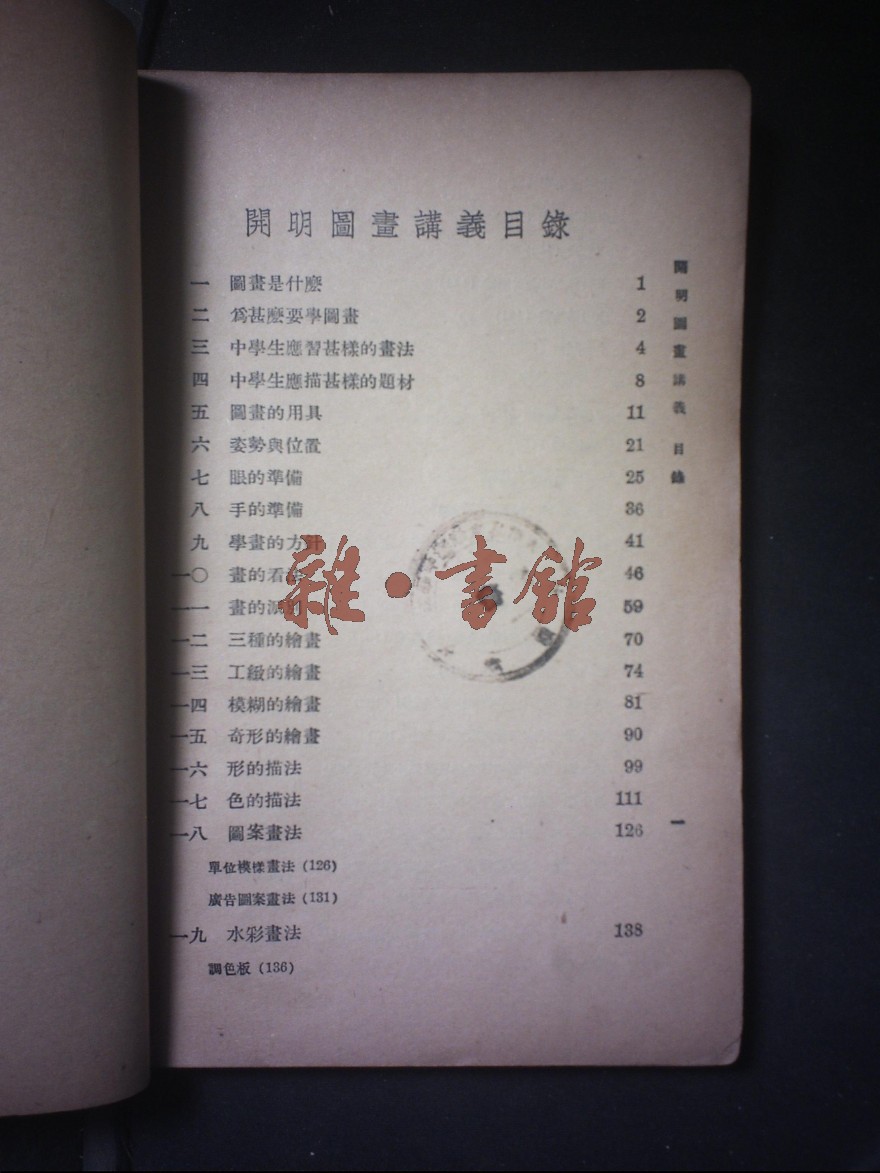 開明圖畫講義目錄
一 圖畫是什麽 1
二 爲甚麽要學圖畫 2
三 中學生應習甚樣的畫法 4
四 中學生應描甚樣的題材 8
五 圖畫的用具 11
六 姿勢與位置 21
七 眼的準備 25
八 手的準備 36
九 學畫的方針 41
一〇 畫的看法 46
一一 畫的派別 59
一二 三種的繪畫 70
一三 工緻的繪畫 74
一四 模糊的繪畫 81
一五 奇形的繪畫 90
一六 形的描法 99
一七 色的描法 111
一八 圖案畫法 126
單位模樣畫法 (126)
廣告圖案畫法 (131)
一九 水彩畫法 138
調色板 (136)
開明圖畫講義 目錄
一
雜·書館